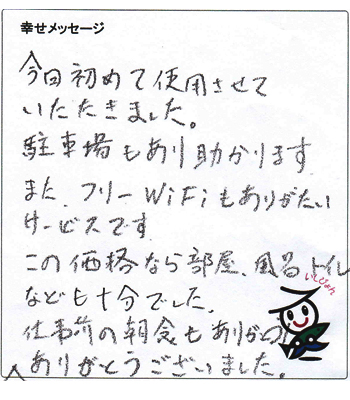 幸せメッセージ
今回初めて使用させて
いただきました。
駐車場もあり助かります
また、フリーWiFiもありがたい
サービスです
この価格なら部屋、風呂トイレ
なども十分でした。
仕事前の朝食もありがとう
ありがとうございました。